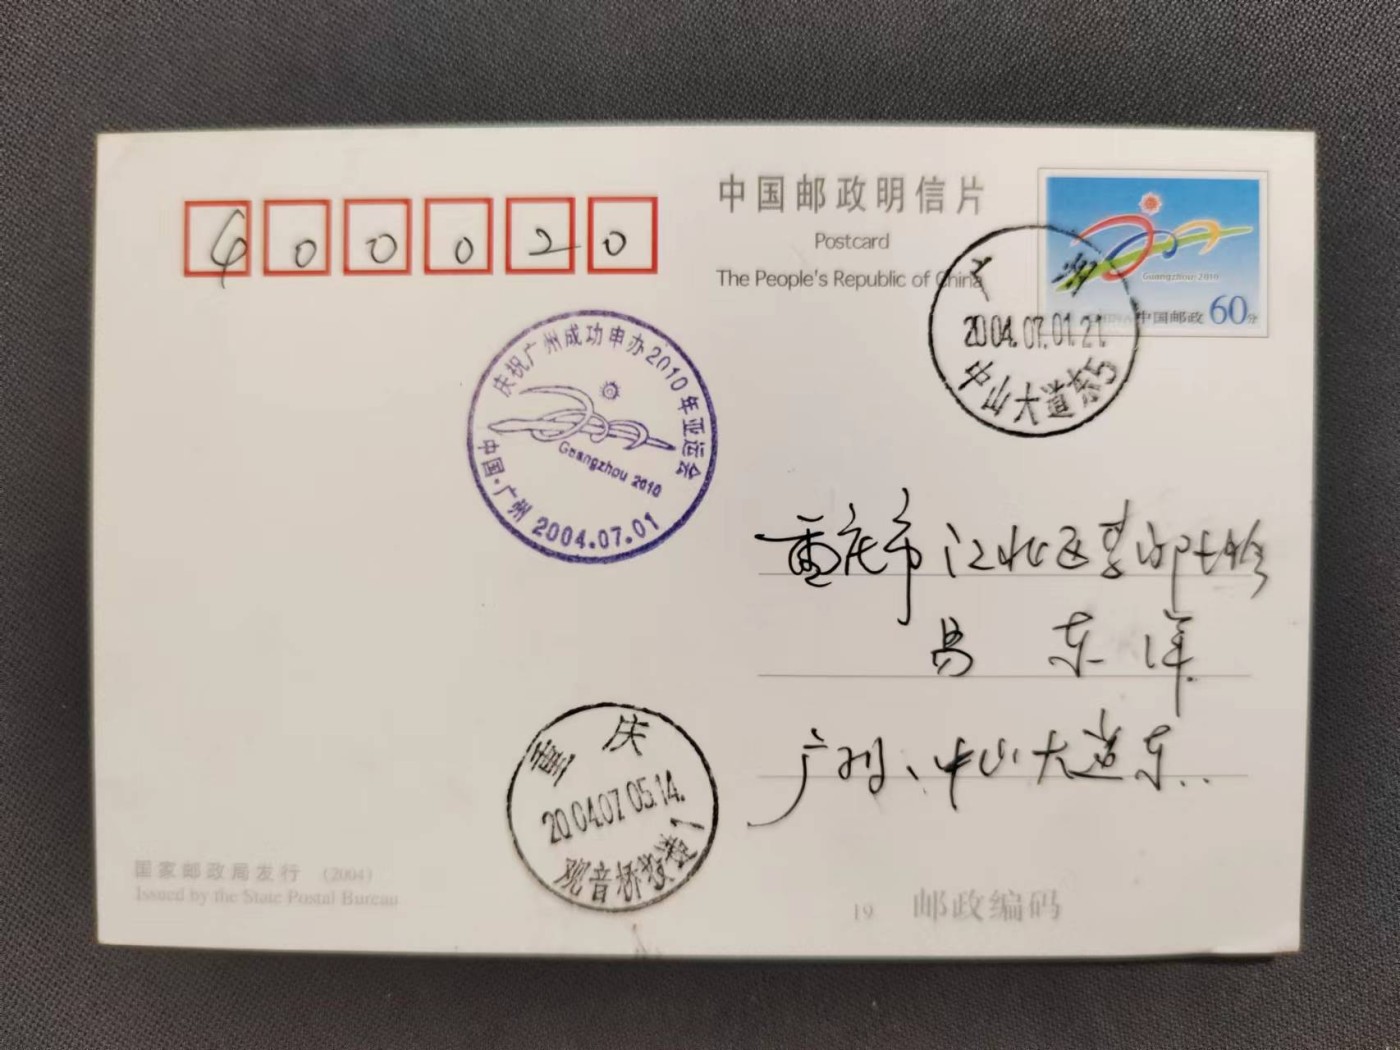 400020
中国邮政明信片
Postcard
The People's Republic of China
Guangzhou 2010
中国邮政 60分
广州
2004.07.01.21
中山大道东5
庆祝广州成功申办2010年亚运会
Guangzhou 2010
中国·广州 2004.07.01
重庆市江北区
易东洋
广州、中山大道东..
重庆
2004.07.05.14.
观音桥
国家邮政局发行 (2004)
Issued by the State Postal Bureau
19 邮政编码